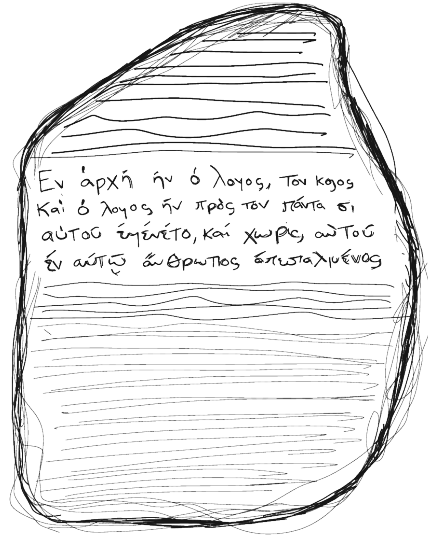 Εν ἀρχῇ ἠν ὁ λογος, τον κοσος
Και ὁ λογος ἠν πρὸς τον πάντα σι
αὐτοῦ ἐγένετο, και χωρις, αὐτοῦ
ἐν αὐτῷ ἄνθρωπος ἀπεσταλμένος